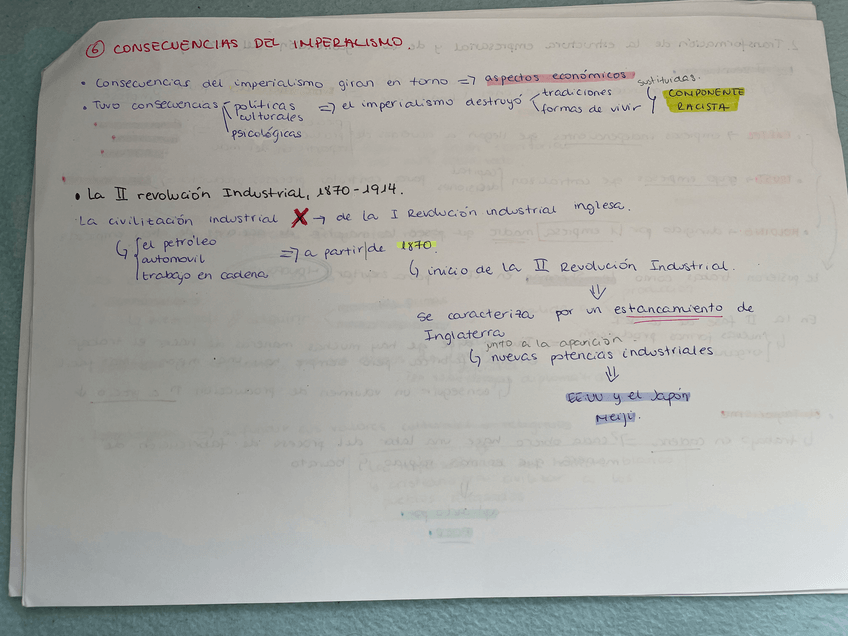 ⑥ CONSECUENCIAS DEL IMPERALISMO.
• Consecuencias del imperialismo giran en torno => aspectos económicos
• Tuvo consecuencias políticas => el imperialismo destruyó tradiciones sustituidas.
culturales formas de vivir ↳ COMPONENTE
psicológicas RACISTA
• La II revolución Industrial, 1870-1914.
La civilitación industrial X → de la I Revolución industrial inglesa.
↳ el petróleo
automovil => a partir de 1870.
trabajo en cadena ↳ inicio de la II Revolución Industrial.
⇓
se caracteriza por un estancamiento de
Inglaterra
junto a la aparición.
↳ nuevas potencias industriales
⇓
EEUU y el Japón
Meiji.